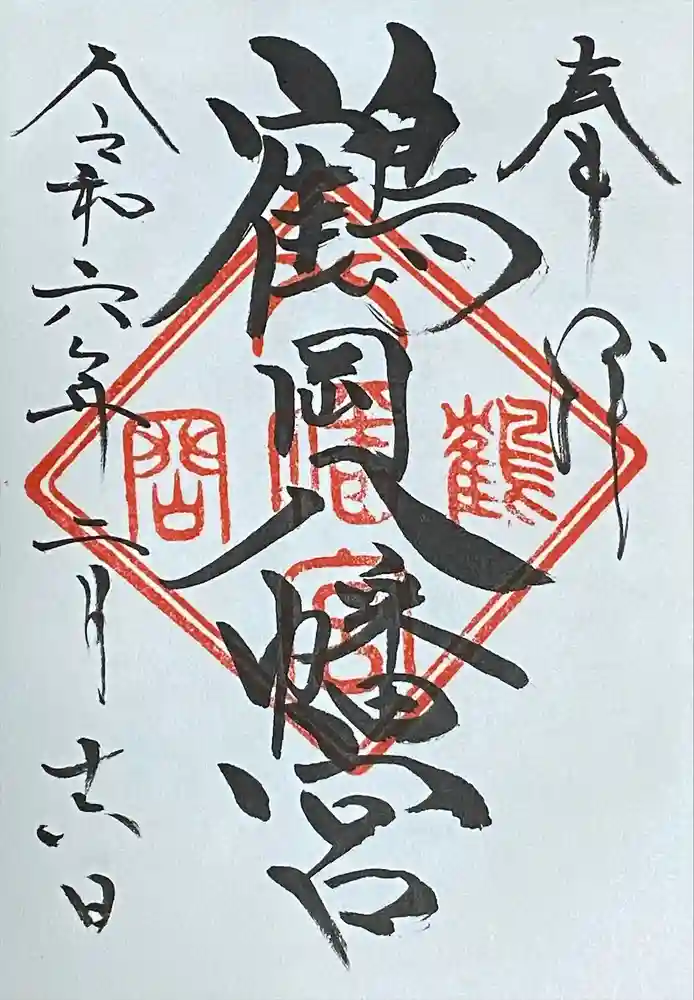 奉拝
鶴岡八幡宮
鶴岡八幡宮
令和六年二月十六日